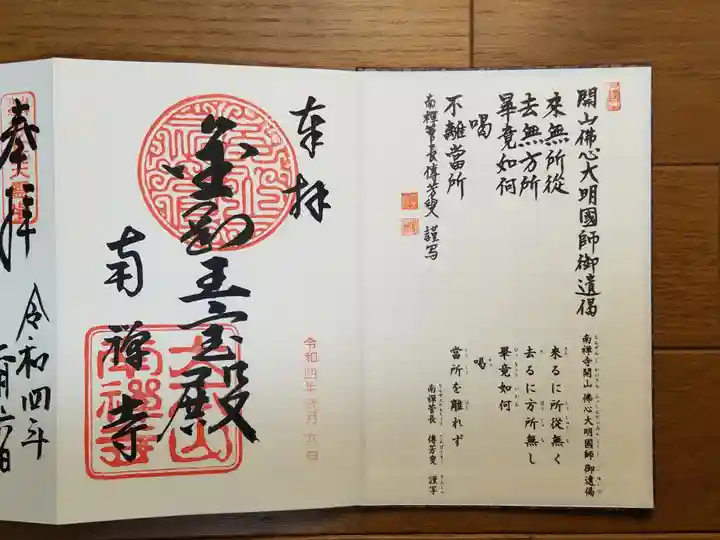 開山佛心大明國師御遺偈
來無所從
去無方所
畢竟如何
喝
不離當所
南禪管長傳芳叟 謹写
南禅寺開山 佛心大明國師 御遺偈
来るに所従無く
去るに方所無し
畢竟如何
喝
當所を離れず
南禅管長 傳芳叟 謹写
奉拝
金剛王宝殿
南禅寺
令和四年弐月六日
奉拝
令和四年
二月六日